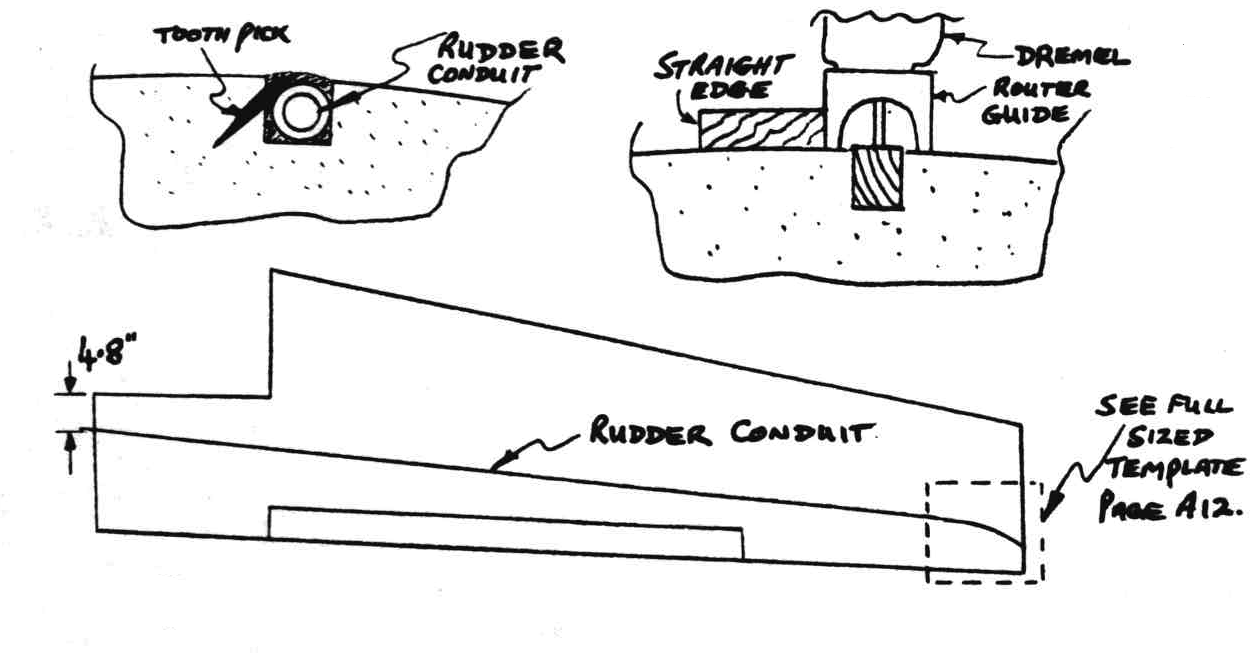 TOOTH PICK
RUDDER
CONDUIT
STRAIGHT
EDGE
DREMEL
ROUTER
GUIDE
4.8"
RUDDER CONDUIT
SEE FULL
SIZED
TEMPLATE
PAGE A12.